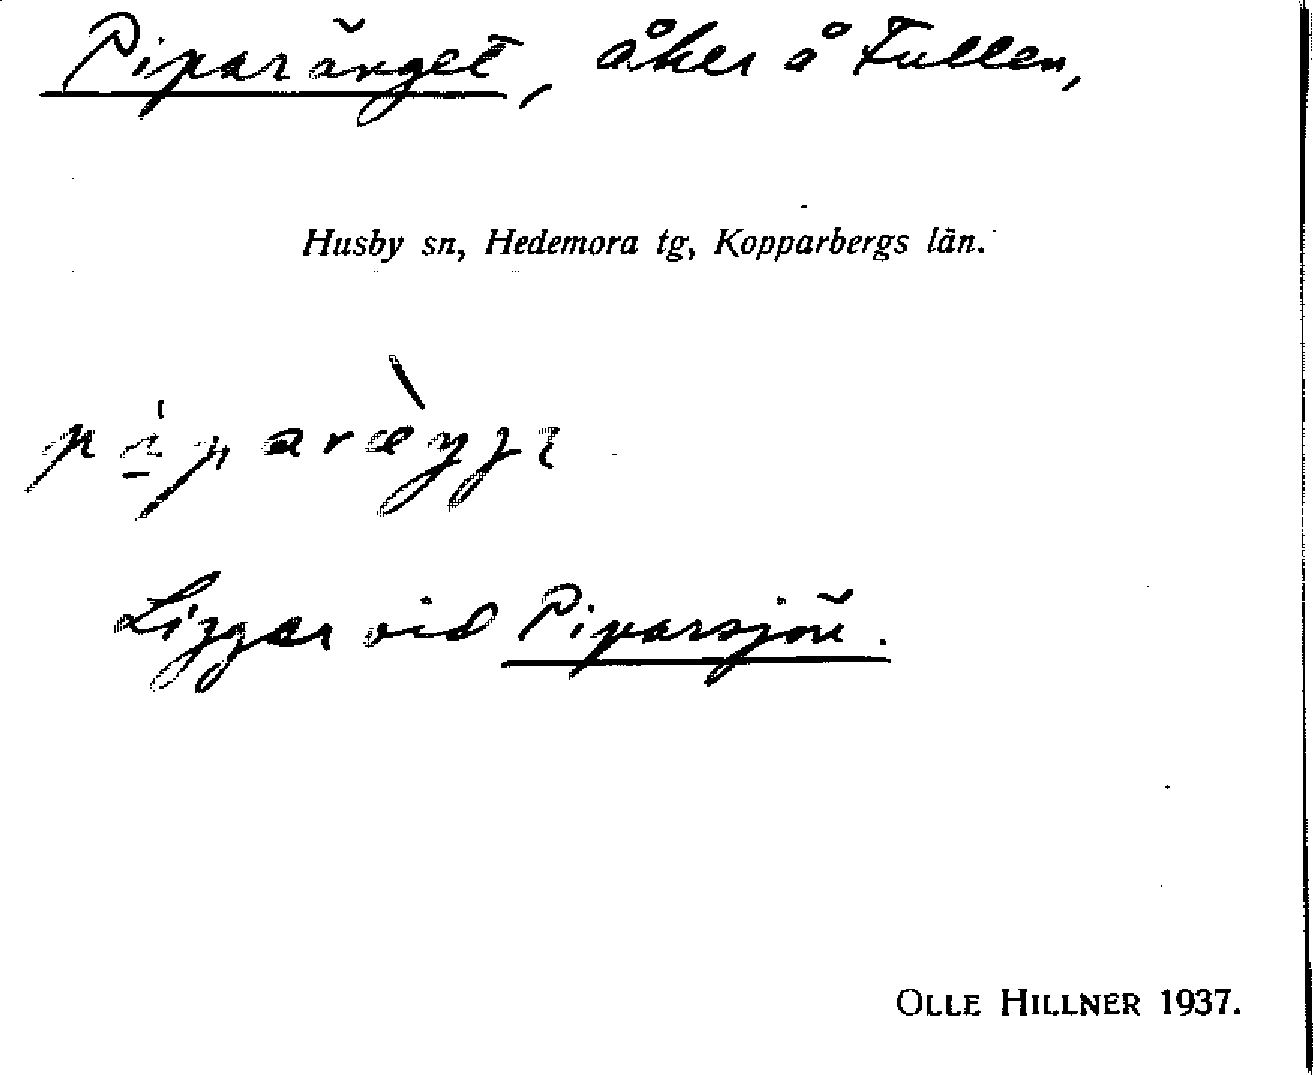 Piparänget, åker å Tullen,
Husby sn, Hedemora tg, Kopparbergs län.
Ligger vid Piparsjön.
OLLE HILLNER 1937.